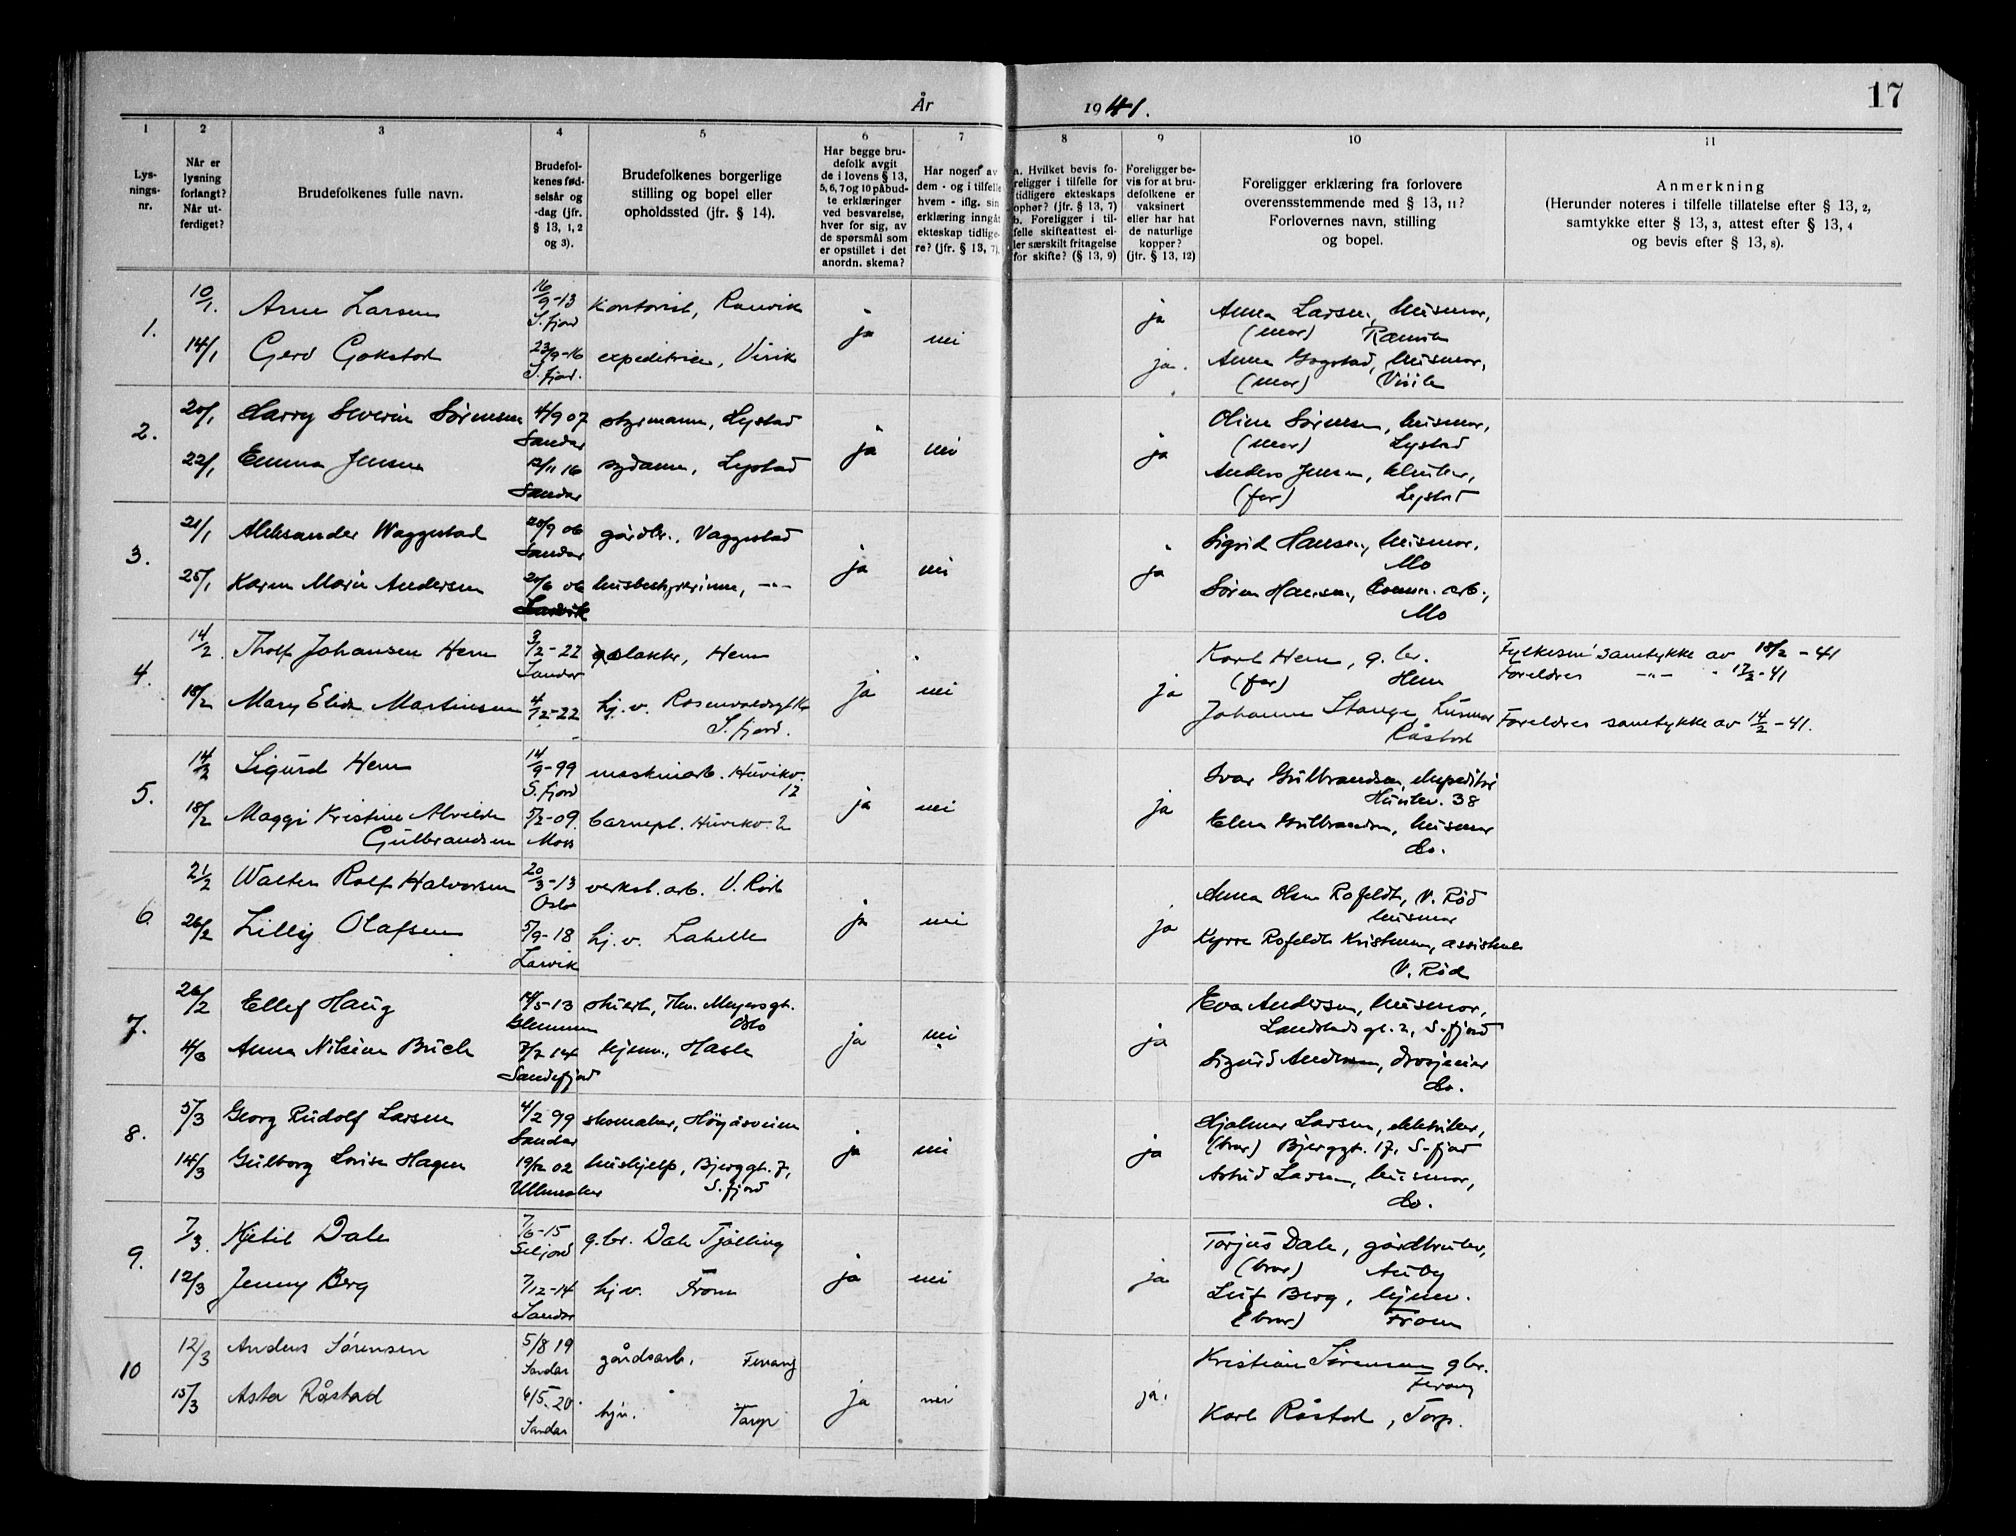 17
År 1941.
1 2 3 4 5 6 7 8 9 10 11
Lys-
nings-
nr.
Når er
lysning
forlangt?
Når ut-
ferdiget?
Brudefolkenes fulle navn.
Brudefol-
kenes fød-
selsår og
-dag (jfr.
§ 13, 1, 2
og 3).
Brudefolkenes borgerlige
stilling og bopel eller
opholdssted (jfr. § 14).
Har begge bru-
defolk avgit
de i lovens § 13,
5, 6, 7 og 10 påbud-
te erklæringer
ved besvarelse,
hver for sig, av
de spørsmål som
er opstillet i det
anordn. skema?
Har nogen av
dem - og i tilfelle
hvem - iflg. sin
erklæring inngått
ekteskap tidlige-
re? (jfr. § 13, 7).
a. Hvilket bevis fo-
religger i tilfelle for
tidligere ekteskaps
ophør? (jfr. § 13, 7)
b. Foreligger i til-
felle skifteattest el-
ler særskilt fritagelse
for skifte? (§ 13, 9)
Foreligger be-
vis for at bru-
defolkene er
vaksinert
eller har hat
de naturlige
kopper?
(jfr. § 13, 12)
Foreligger erklæring fra forlovere
overensstemmende med § 13, 11?
Forlovernes navn, stilling
og bopel.
Anmerkning
(Herunder noteres i tilfelle tillatelse efter § 13, 2,
samtykke efter § 13, 3, attest efter § 13, 4
og bevis efter § 13, 8).
1. 10/1. Arne Larsen 16/9-13 kontorist, Ranvik ja nei ja Anna Larsen, husmor,
S.fjord (mor) Ranvik
14/1 Gerd Gokstad 23/9-16 expeditrice, Virik ja. Anna Gogstad, husmor,
S.fjord. (mor) Virik
2. 20/1 Harry Severin Sørensen 4/9 07 styrmann, Lystad ja nei ja Oline Sørensen, husmor,
Sandar (mor) Lystad
22/1 Emma Jensen 12/11 16 sydame, Lystad Anders Jensen,
Sandar (far) Lystad
3. 21/1 Aleksander Waggestad 20/9 06 gårdbr., Vaggestad ja nei ja Sigrid Hansen, husmor.
Sandar Mo
25/1 Karen Marie Andersen 20/6 06 husbestyrerinne, -"- Søren Hansen, komm. arb.,
Larvik Mo
4. 14/2 Tholf Johansen Hem 3/2-22 slakter, Hem ja nei ja Karl Hem, g.br. Fylkesm. samtykke av 18/2-41
Sandar (far) Hem Foreldres -"- 17/2-41
18/2 Mary Elida Martinsen 4/12-22 hj.v. Johanne Stange, husmor Foreldres samtykke av 14/2-41.
S.fjord. Råstad
5. 14/2 Sigurd Hem 14/9-99 maskinarb. Huvikv. ja nei ja Ivar Gulbrandsen, ekspeditør
S.fjord 12 38
18/2 Maggi Kristine Alvilde 5/2-09. barnepl. Huvikv. 2 Elna Gulbrandsen, husmor
Gulbrandsen Moss do.
6. 21/2 Walter Rolf Halvorsen 20/3-13 verkst.arb. V. Rød ja nei ja Anna Olsen Rofeldt, V. Rød
Oslo husmor
26/2 Lilly Olafsen 5/9-18 hj.v. Lahelle Kyrre Rofeldt Kristensen, assistent
Larvik V. Rød
7. 26/2 Ellef Haug 14/5-13 stuert, Thv. Meyersgt. ja nei ja Eva Andersen, husmor,
Glemmen Oslo Landstadsgt. 2, S-fjord
4/3 Anna Nilsine Buch 7/2 14 hjem., Hasle Sigurd Andersen, drosjeeier
Sandefjord do.
8. 5/3 Georg Rudolf Larsen 4/2 99 skomaker, Høyåsveien ja nei ja Hjalmar Larsen, elektriker,
Sandar (bror) Bjerggt. 17, S-fjord
14/3 Gulborg Lovise Hagen 19/12 02 hushjelp, Bjerggt. 7, Astrid Larsen, husmor,
Ullensaker S.fjord do.
9. 7/3. Kjetil Dale 7/6-15 g.br. Dale Tjølling ja nei ja Torjus Dale, gårdbruker,
Seljord (bror) Auby
12/3 Jenny Berg 7/12-14 hj.v. Fromm Leif Berg, hjem.
Sandar (bror) Fromm
10 12/3 Anders Sørensen 5/8 19 gårdsarb. Ferang ja nei ja. Kristian Sørensen gbr.
Sandar Ferang
15/3 Asta Råstad 6/5.20. hjv. Torp Karl Råstad, Torp.
Sandar